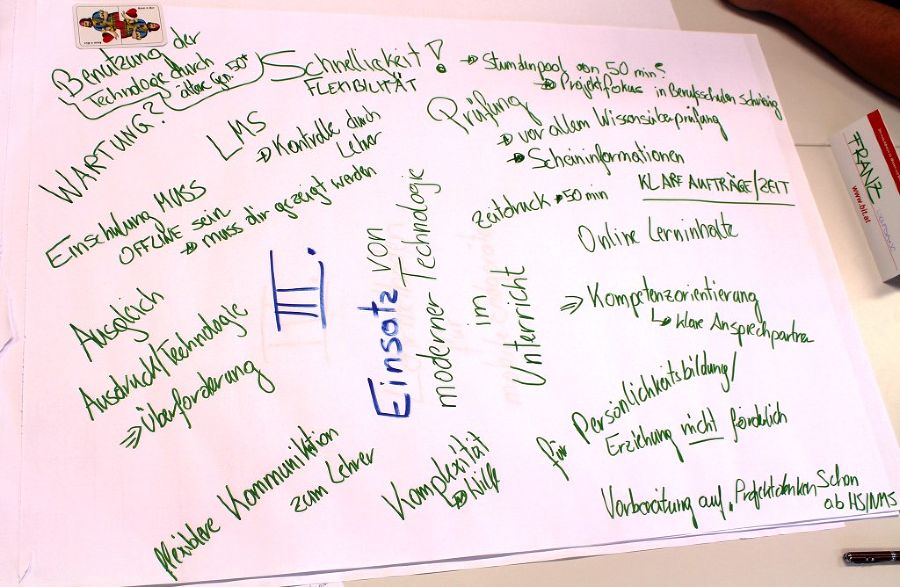 Benutzung der
Technologie durch
ältere Gen. 50+
Schnelligkeit!
FLEXIBILITÄT
Stundenpool von 50 min?
Projektfokus in Berufsschulen schwierig
WARTUNG?
LMS
Kontrolle durch
Lehrer
Prüfung
vor allem Wissensüberprüfung
Scheininformationen
Einschulung MUSS
OFFLINE sein
muss dir gezeigt werden
Zeitdruck 50 min
KLARE AUFTRÄGE/ZEIT
Online Lerninhalte
III.
Einsatz von
moderner Technologie
im
Unterricht
Kompetenzorientierung
klare Ansprechpartner
Ausgleich
Ausdruck/Technologie
Überforderung
für Persönlichkeitsbildung/
Erziehung nicht förderlich
flexiblere Kommunikation
zum Lehrer
Komplexität
Hilfe
Vorbereitung auf Projektdenken Schon
ab HS/NMS
FRANZ
www.bit.at